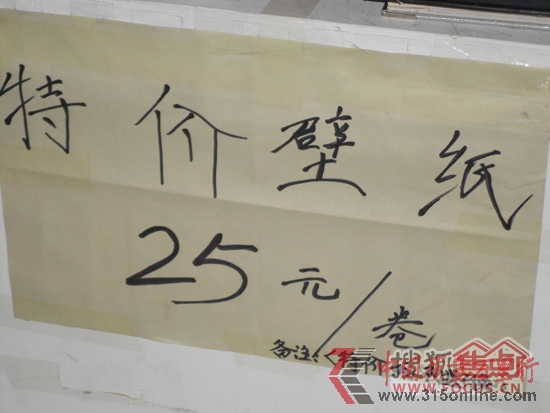 特价壁纸
25元/卷
备注:特价
搜狐焦点
FOCUS.CN
www.315online.com